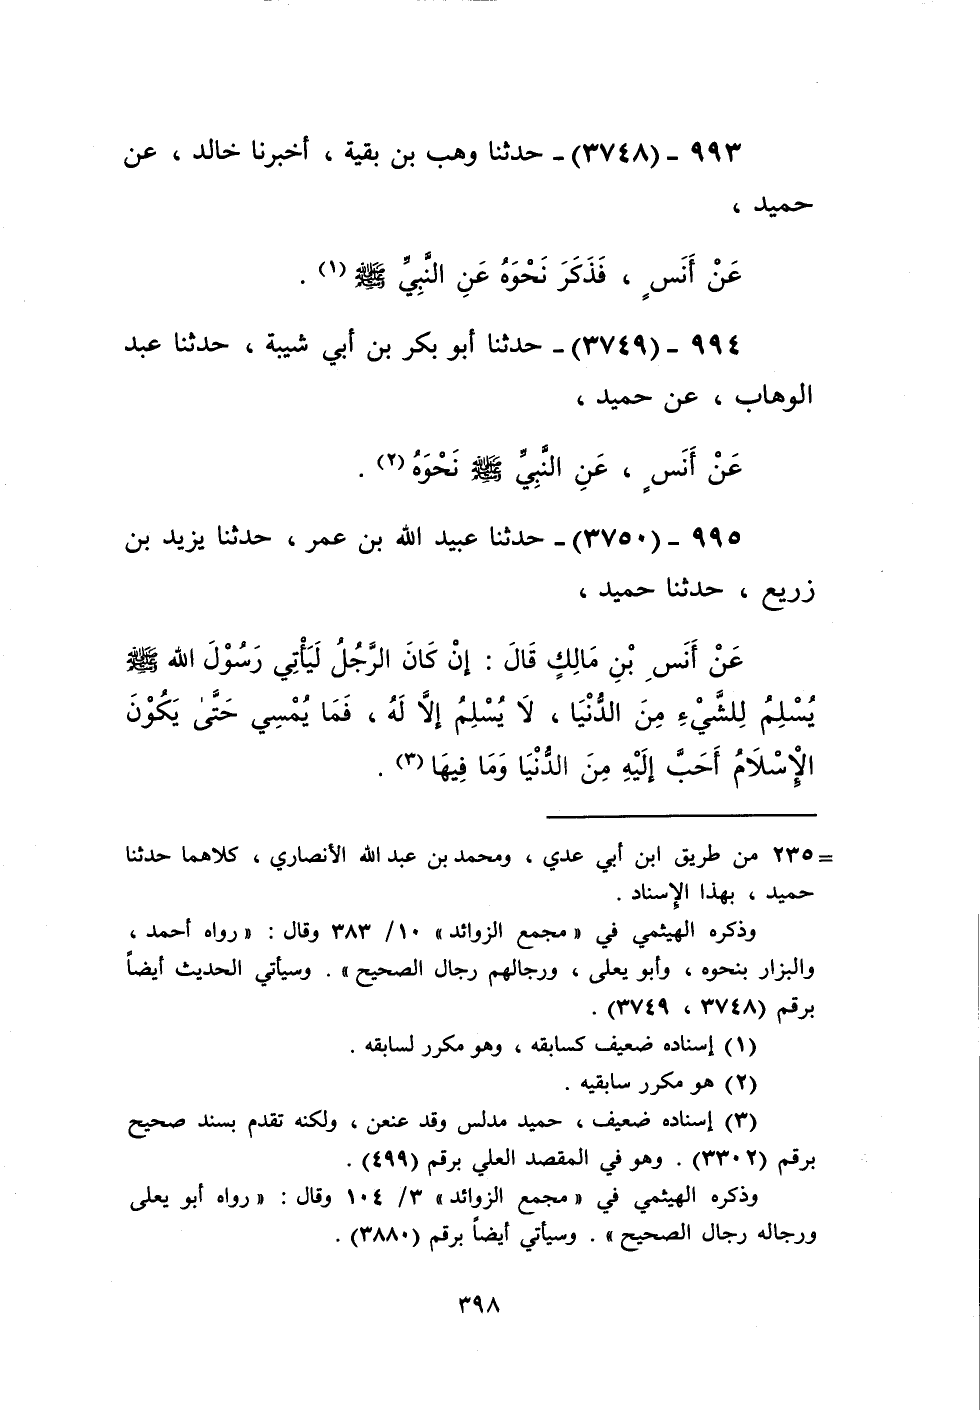 ٩٩٣ - (٣٧٤٨) - حدثنا وهب بن بقية ، أخبرنا خالد ، عن
حميد ،
عَنْ أَنَسٍ ، فَذَكَرَ نَحْوَهُ عَنِ النَّبِيِّ ﷺ (١) .
٩٩٤ - (٣٧٤٩) - حدثنا أبو بكر بن أبي شيبة ، حدثنا عبد
الوهاب ، عن حميد ،
عَنْ أَنَسٍ ، عَنِ النَّبِيِّ ﷺ نَحْوَهُ (٢) .
٩٩٥ - (٣٧٥٠) - حدثنا عبيد الله بن عمر ، حدثنا يزيد بن
زريع ، حدثنا حميد ،
عَنْ أَنَسِ بْنِ مَالِكٍ قَالَ : إِنْ كَانَ الرَّجُلُ لَيَأْتِي رَسُوْلَ الله ﷺ
يُسْلِمُ لِلشَّيْءِ مِنَ الدُّنْيَا ، لَا يُسْلِمُ إِلَّا لَهُ ، فَمَا يُمْسِي حَتَّىٰ يَكُوْنَ
الْإِسْلَامُ أَحَبَّ إِلَيْهِ مِنَ الدُّنْيَا وَمَا فِيهَا (٣) .
= ٢٣٥ من طريق ابن أبي عدي ، ومحمد بن عبد الله الأنصاري ، كلاهما حدثنا
حميد ، بهذا الإسناد .
وذكره الهيثمي في « مجمع الزوائد » ١٠/ ٣٨٣ وقال : « رواه أحمد ،
والبزار بنحوه ، وأبو يعلى ، ورجالهم رجال الصحيح » . وسيأتي الحديث أيضاً
برقم (٣٧٤٨ ، ٣٧٤٩) .
(١) إسناده ضعيف كسابقه ، وهو مكرر لسابقه .
(٢) هو مكرر سابقيه .
(٣) إسناده ضعيف ، حميد مدلس وقد عنعن ، ولكنه تقدم بسند صحيح
برقم (٣٣٠٢) . وهو في المقصد العلي برقم (٤٩٩) .
وذكره الهيثمي في « مجمع الزوائد » ٣/ ١٠٤ وقال : « رواه أبو يعلى
ورجاله رجال الصحيح » . وسيأتي أيضاً برقم (٣٨٨٠) .
٣٩٨